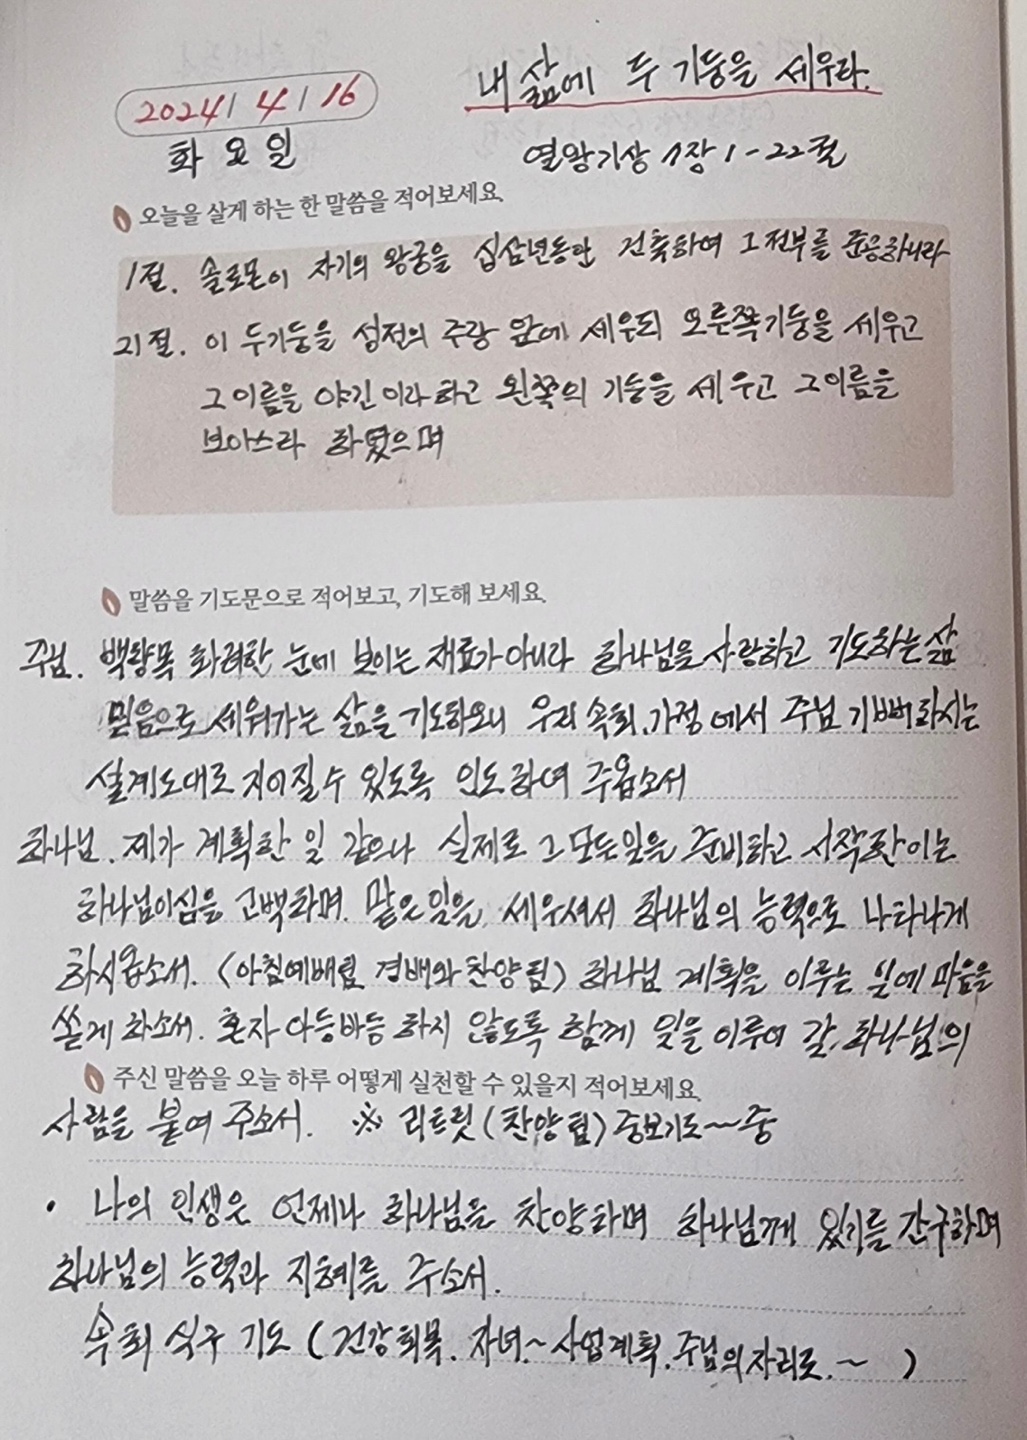 내 삶에 두 기둥을 세우라.
2024 / 4 / 16
화요일
열왕기상 7장 1-22절
오늘을 살게 하는 한 말씀을 적어보세요.
1절. 솔로몬이 자기의 왕궁을 십삼년동안 건축하여 그 전부를 준공하니라
21절. 이 두기둥을 성전의 주랑 앞에 세우되 오른쪽기둥을 세우고
그 이름을 야긴이라 하고 왼쪽의 기둥을 세우고 그이름을
보아스라 하였으며
말씀을 기도문으로 적어보고, 기도해 보세요.
주님. 백향목 화려한 눈에 보이는 재료가 아니라 하나님을 사랑하고 기도하는 삶
믿음으로 세워가는 삶을 기도하오니 우리 속회.가정에서 주님 기뻐하시는
설계도대로 지어질 수 있도록 인도하여 주옵소서
하나님. 제가 계획한 일 같으나 실제로 그 모든일을 준비하고 시작한 이는
하나님이심을 고백하며. 맡은 일을 세우셔서 하나님의 능력으로 나타나게
하시옵소서. (아침예배팀 경배와 찬양팀) 하나님 계획을 이루는 일에 마음을
쏟게 하소서. 혼자 아등바등 하지 않도록 함께 일을 이루어 갈, 하나님의
주신 말씀을 오늘 하루 어떻게 실천할 수 있을지 적어보세요.
사람을 붙여 주소서. ※ 리트릿 (찬양팀) 중보기도~중
• 나의 인생은 언제나 하나님을 찬양하며 하나님께 있기를 간구하며
하나님의 능력과 지혜를 주소서.
속회 식구 기도 (건강회복. 자녀.~ 사업계획. 주님의자리로.~ )